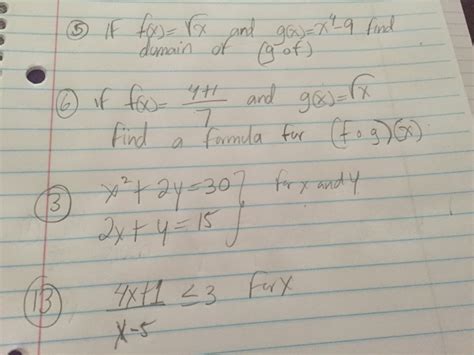 ⑤ If f(x)= √x and g(x)=x⁴-9 find
domain of (g∘f)
⑥ if f(x)= (y+1)/7 and g(x)=√x
find a formula for (f∘g)(x)
③ x²+2y=30 } for x and y
2x+y=15
⑬ (4x+1)/(x-5) ≤3 for x